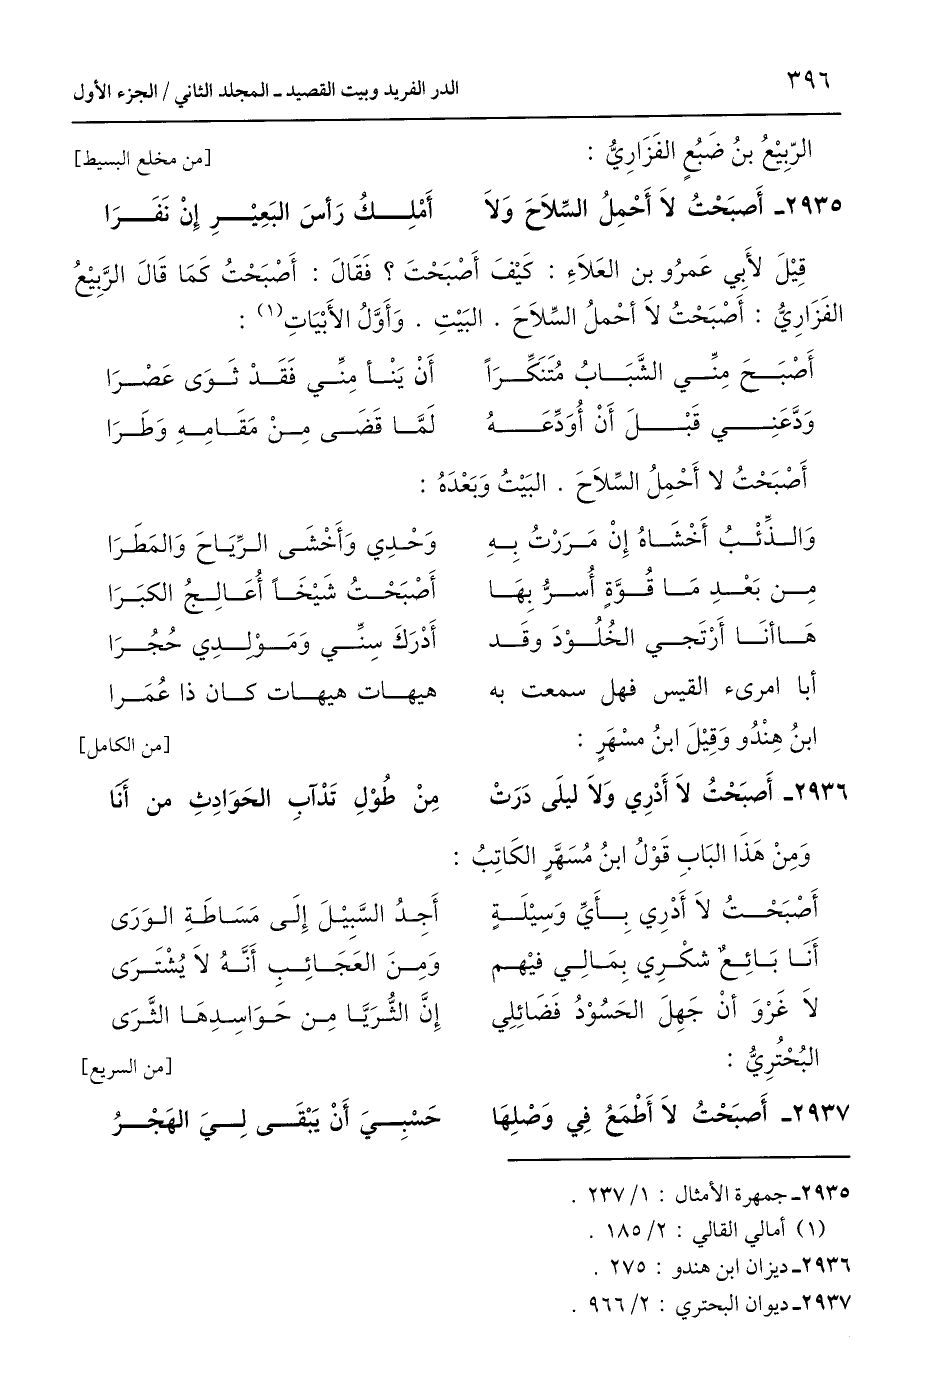 ٣٩٦
الدر الفريد وبيت القصيد ـ المجلد الثاني / الجزء الأول
الرّبِيْعُ بنُ ضَبُعٍ الفَزَارِيُّ :
[من مخلع البسيط]
٢٩٣٥ـ أَصبَحْتُ لاَ أَحْمِلُ السِّلاَحَ وَلاَ أَمْلِكُ رَأسَ البَعِيْرِ إِنْ نَفَرَا
قِيْلَ لأَبِي عَمرُو بن العَلاَءِ : كَيْفَ أَصْبَحْتَ ؟ فَقَالَ : أَصْبَحْتُ كَمَا قَالَ الرَّبِيْعُ
الفَزَارِيُّ : أَصْبَحْتُ لاَ أحْملُ السِّلاَحَ . البَيْتِ . وَأوَّلُ الأَبْيَاتِ(١) :
أَصْبَحَ مِنِّي الشَّبَابُ مُتَنَكِّراً أَنْ يَنْأ مِنِّي فَقَدْ ثَوَى عَصْرَا
وَدَّعَنِي قَبْلَ أَنْ أُوَدِّعَهُ لَمَّا قَضَى مِنْ مَقَامِهِ وَطَرَا
أَصْبَحْتُ لا أَحْمِلُ السِّلاَحَ . البَيْتُ وَبَعْدَهُ :
وَالذِّئْبُ أَخْشَاهُ إِنْ مَرَرْتُ بِهِ وَحْدِي وَأَخْشَى الرِّيَاحَ وَالمَطَرَا
مِن بَعْدِ مَا قُوَّةٍ أُسرُّ بِهَا أَصْبَحْتُ شَيْخَاً أُعَالِجُ الكبَرَا
هَاأنَا أَرْتَجي الخُلُوْدَ وقَد أَدْرَكَ سِنِّي وَمَوْلِدِي حُجُرَا
أبا امرىء القيس فهل سمعت به هيهات هيهات كان ذا عُمَرا
ابنُ هِنْدُو وَقِيْلَ ابنُ مسْهَرٍ :
[من الكامل]
٢٩٣٦ـ أَصبَحْتُ لاَ أَدْرِي وَلاَ ليلَى دَرَتْ مِنْ طُوْلِ تَدْآبِ الحَوَادِثِ من أَنَا
وَمِنْ هَذَا البَابِ قَوْلُ ابنُ مُسَهَّرٍ الكَاتِبُ :
أَصْبَحْتُ لاَ أَدْرِي بِأَيِّ وَسِيْلَةٍ أَجدُ السَّبِيْلَ إِلَى مَسَاطَةِ الوَرَى
أَنَا بَائِعٌ شكْرِي بِمَالِي فيْهم وَمِنَ العَجَائِبِ أَنَّهُ لاَ يُشْتَرَى
لاَ غَرْوَ أنْ جَهِلَ الحَسُوْدُ فَضَائِلِي إِنَّ الثُّرَيَّا مِن حَوَاسِدِهَا الثَّرَى
البُحْتُرِيُّ :
[من السريع]
٢٩٣٧ـ أَصبَحْتُ لاَ أَطْمَعُ فِي وَصْلِهَا حَسْبِيَ أَنْ يَبْقَى لِيَ الهَجْرُ
٢٩٣٥ـ جمهرة الأمثال : ٢٣٧/١ .
(١) أمالي القالي : ١٨٥/٢ .
٢٩٣٦ـ ديزان ابن هندو : ٢٧٥ .
٢٩٣٧ـ ديوان البحتري : ٩٦٦/٢ .